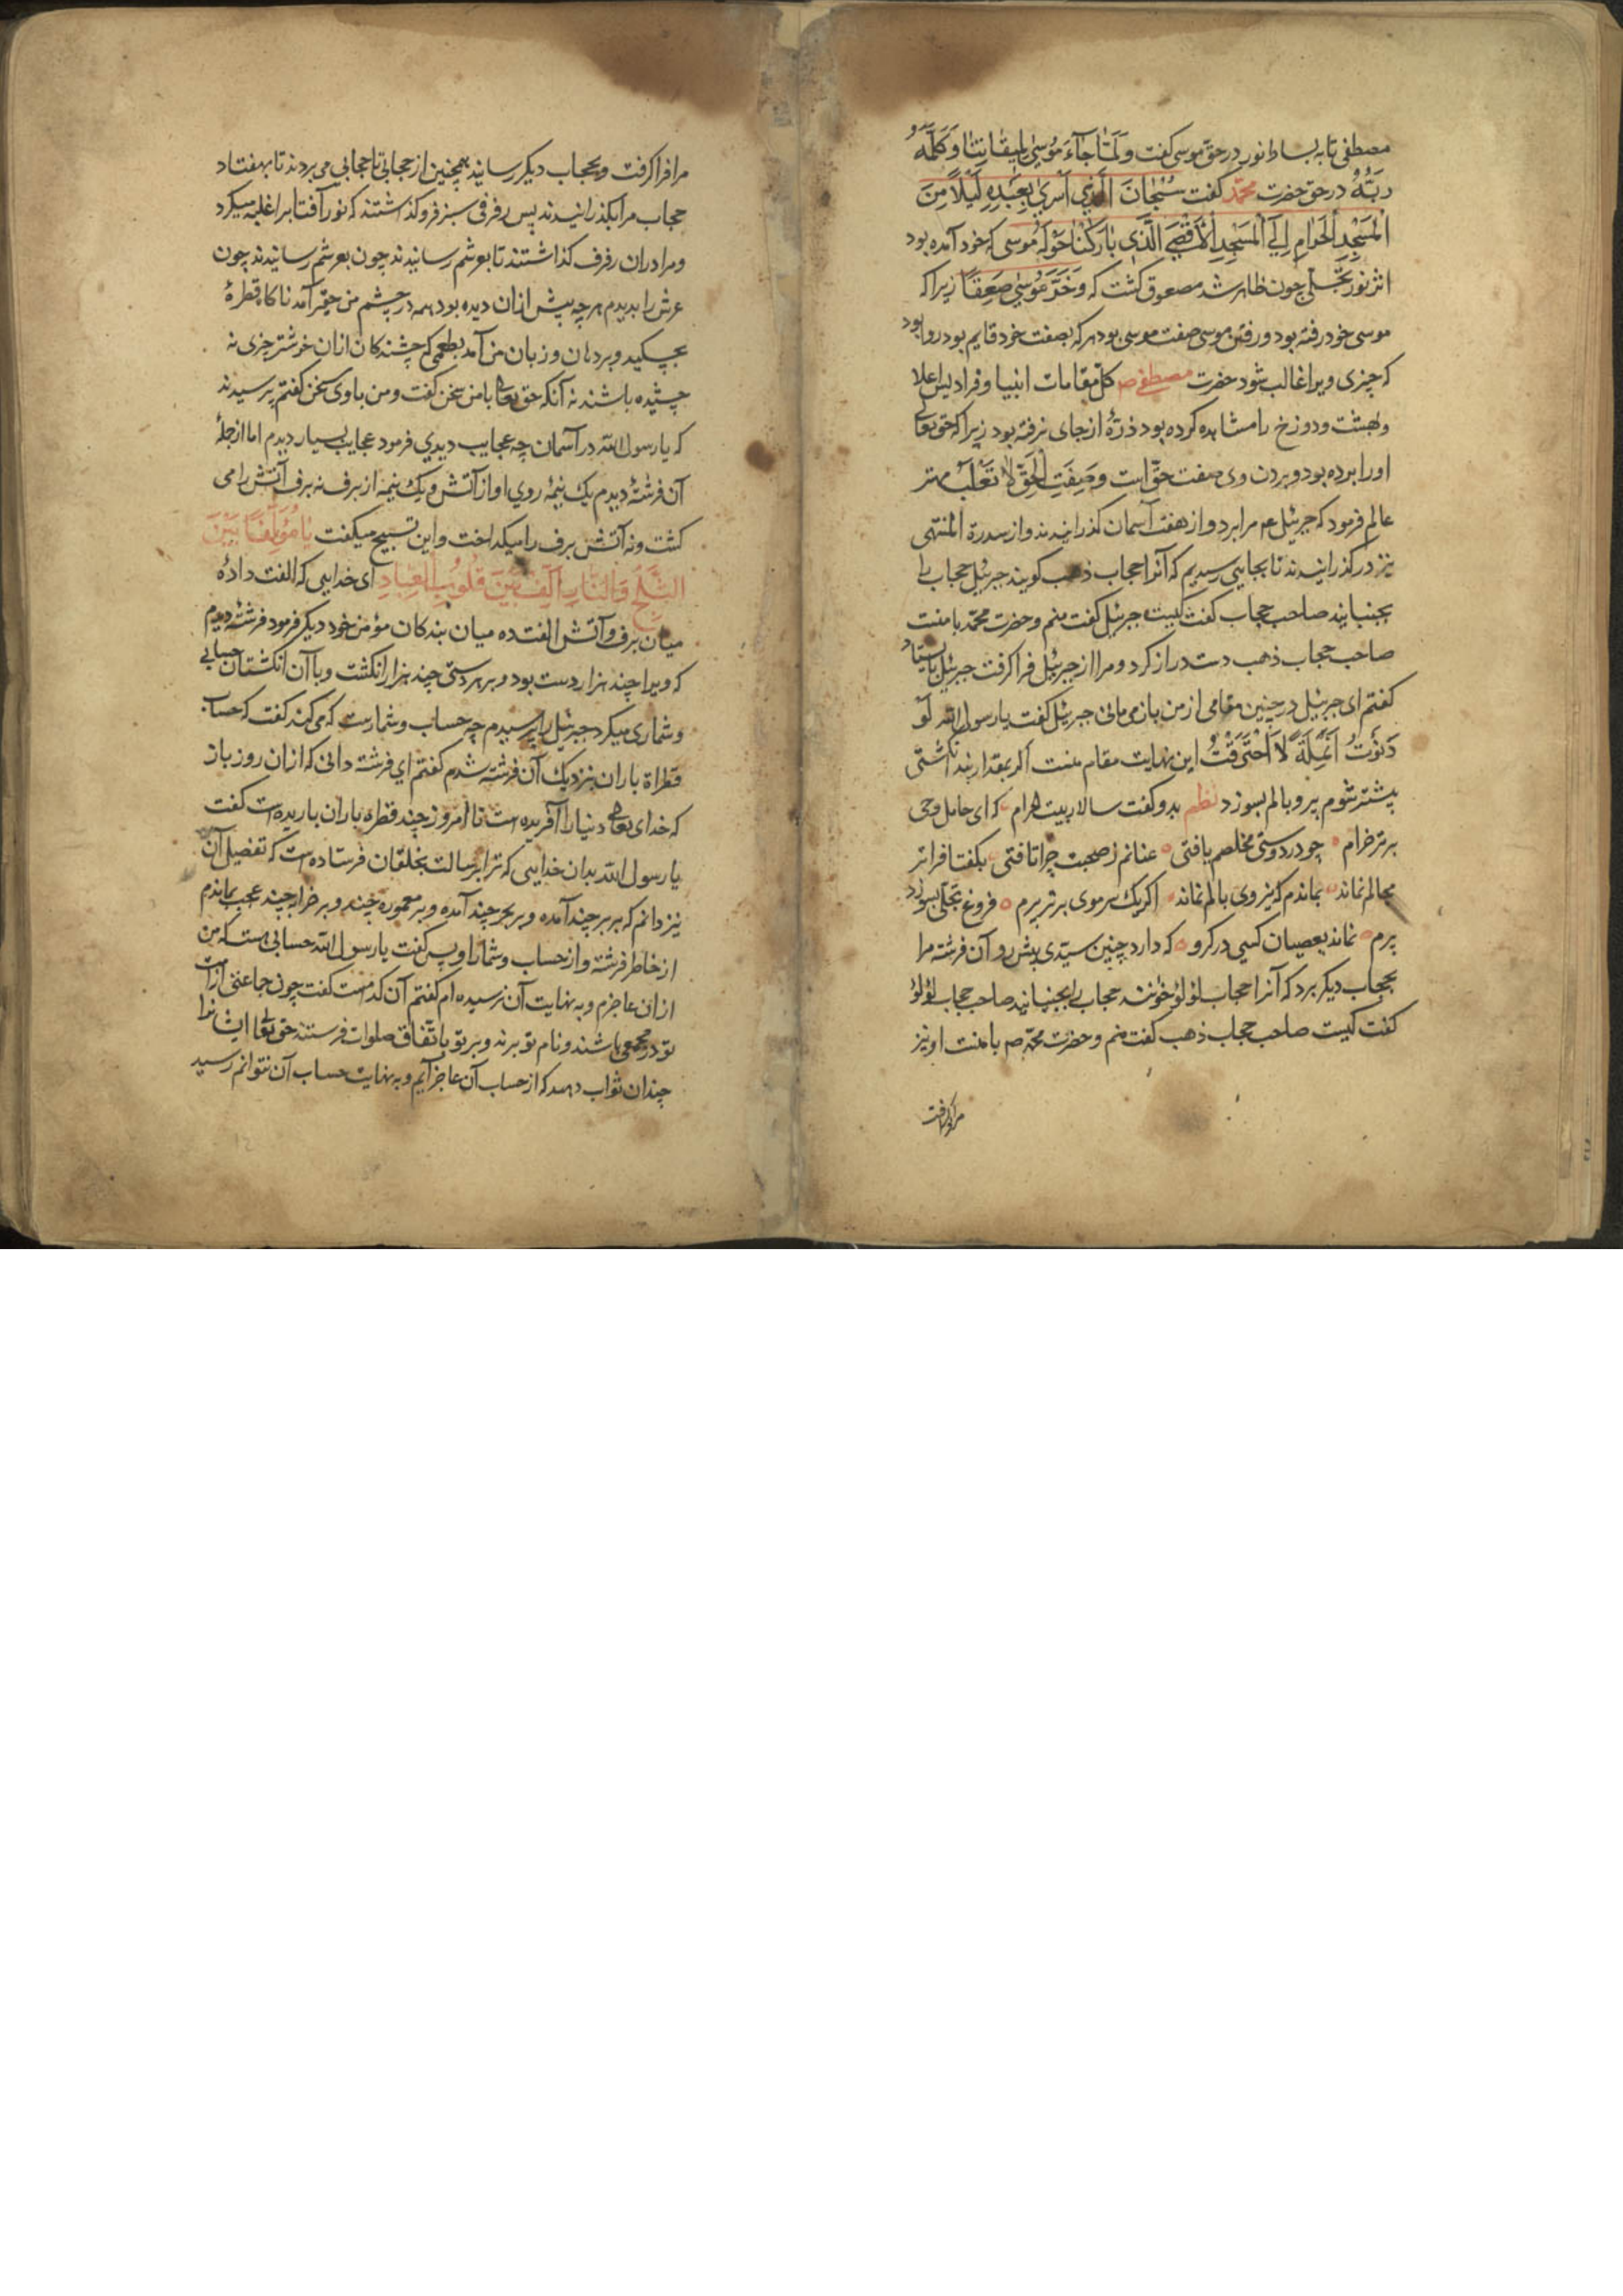 مصطفی تا به بساط انور در حق موسی گفت وَلَمَّا جَآءَ مُوسٰی لِمِیقَاتِنَا وَکَلَّمَهُ
رَبُّهُ در حق حضرت محمّد گفت سُبْحَانَ الَّذِي اَسْرٰي بِعَبْدِهِ لَیْلًا مِنَ
الْمَسْجِدِ الْحَرَامِ اِلَی الْمَسْجِدِ الْاَقْصَی الَّذِي بَارَکْنَا حَوْلَهُ موسی که خود آمده بود
اثر نور تجلّی چون ظاهر شد مصعوق گشت که وَخَرَّ مُوسٰی صَعِقًا زیرا که
موسی خود رفته بود و رفتن موسی صفت موسی بود هر که بصفت خود قایم بود روا بود
که چیزی ویرا غالب شود حضرت مصطفی ص کل مقامات انبیا و فرادیس اعلا
و بهشت و دوزخ را مشاهده کرده بود ذرّهٔ از جای نرفته بود زیرا که حق تعالی
او را برده بود و بردن وی صفت حق است وَصِفَتِ الْحَقِّ لَا تُغْلَبُ مهتر
عالم فرمود که جبرئیل ع م مرا برد و از هفت آسمان گذرانیدند و از سدرة المنتهی
نیز در گذرانیدند تا بجایی رسیدیم که آنرا حجاب ذهب گویند جبرئیل حجاب را
بجنبانید صاحب حجاب گفت کیست جبرئیل گفت منم و حضرت محمّد با منست
صاحب حجاب ذهب دست دراز کرد و مرا از جبرئیل فرا گرفت جبرئیل بایستاد
گفتم ای جبرئیل در چنین مقامی از من باز می مانی جبرئیل گفت یا رسول الله لَوْ
دَنَوْتُ اَنْمِلَةً لَاحْتَرَقْتُ این نهایت مقام منست اگر بمقدار بند انگشتی
پیشتر شوم پر و بالم بسوزد نظم بدو گفت سالار بیت الحرام که ای حامل وحی
برتر خرام چو در دوستی مخلصم یافتی عنانم ز صحبت چرا تافتی بگفتا فراتر
مجالم نماند بماندم که نیروی بالم نماند اگر یک سر موی برتر پرم فروغ تجلّی بسوزد
پرم نماند بعصیان کسی در گرو که دارد چنین سیّدی پیش رو آن فرشته مرا
بحجاب دیگر برد که آنرا حجاب لؤلؤ خوانند حجاب را بجنبانید صاحب حجاب لؤلؤ
گفت کیست صاحب حجاب ذهب گفت منم و حضرت محمّد ص با منست او نیز
مرا فرا گرفت
مرا فرا گرفت و بحجاب دیگر رسانید همچنین از حجابی تا حجابی می بردند تا بهفتاد
حجاب مرا بگذرانیدند پس رفرفی سبز فرو گذاشتند که نور آفتاب را غلبه میکرد
و مرا در ان رفرف گذاشتند تا بعرشم رسانیدند چون بعرشم رسانیدند چون
عرش را بدیدم هر چه پیش از ان دیده بودم همه در چشم من حقیر آمد ناگاه قطرهٔ
بچکید و بر دهان و زبان من آمد بطعمی که چشندگان از ان خوشتر چیزی نه
چشیده باشند نه آنکه حق تعالی با من سخن گفت و من با وی سخن گفتم پرسیدند
که یا رسول الله در آسمان چه عجایب دیدی فرمود عجایب بسیار دیدم اما از جملهٔ
آن فرشتهٔ دیدم یک نیمهٔ روي او از آتش و یک نیمه از برف نه برف آتش را می
کشت و نه آتش برف را میگداخت و این تسبیح میگفت یَا مُؤَلِّفًا بَیْنَ
الثَّلْجِ وَالنَّارِ اَلِّفْ بَیْنَ قُلُوبِ الْعِبَادِ ای خدایی که الفت دادهٔ
میان برف و آتش الفت ده میان بندگان مؤمن خود دیگر فرمود فرشتهٔ دیدم
که ویرا چند هزار دست بود و بر هر دستی چند هزار انگشت و با آن انگشتان حسابی
و شماری میکرد جبرئیل را پرسیدم چه حساب و شمارست که می کند گفت که حساب
قطراة باران بنزدیک آن فرشته شدم گفتم اي فرشته دانی که از ان روز باز
که خدای تعالی دنیا را آفریده است تا امروز چند قطره باران باریده است گفت
یا رسول الله بدان خدایی که ترا برسالت بخلقان فرستاده است که تفصیل آن
نیز دانم که بر بر چند آمده و بر بحر چند آمده و بر معموره چند و بر خراب چند عجب بماندم
از خاطر فرشته و از حساب و شمار او پس گفت یا رسول الله حسابی هست که من
از ان عاجزم و به نهایت آن نرسیده ام گفتم آن کدامست گفت چون جماعتی از امت
تو در مجمعی باشند و نام تو برند و بر تو باتفاق صلوات فرستند حق تعالی ایشانرا
چندان ثواب دهد که از حساب آن عاجز آیم و به نهایت حساب آن نتوانم رسید